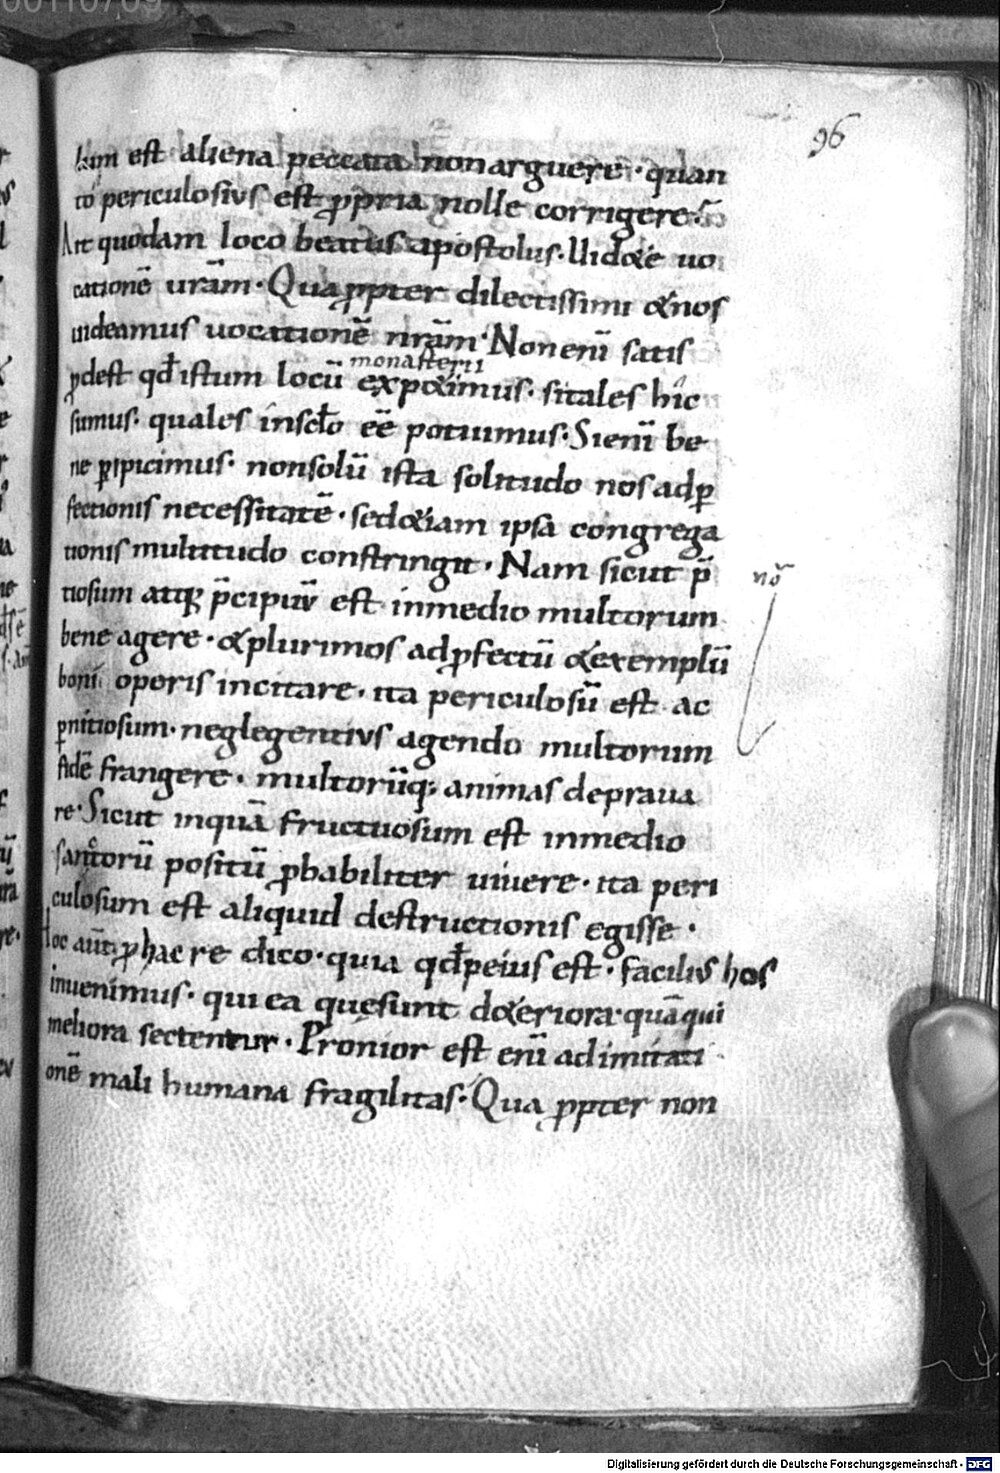 96
est aliena peccata non arguere · quan
tó periculosius est ꝓpria nolle corrigere·
Ait quodam loco beatus apostolus · Uid&e uo
cationē urām · Qua ꝓpter dilectissimi & nos
uideamus uocationē nrām · Non enī satis
monasterii
ꝓdest qđ istum locū exp&imus · si tales hic
sumus · quales in sclo ēē potuimus · Si enī be
ne ꝑspicimus · non solū ista solitudo nos ad ꝑ
fectionis necessitatē · sed &iam ipsa congrega
tionis multitudo constringit · Nam sicut p̄
tiosum atq; p̄cipuū est in medio multorum
bene agere · & plurimos ad ꝓfectū & exemplū
boni operis incitare · ita periculosū est ac
ꝑnitiosum · neglegentius agendo multorum
fidē frangere · multorūq; animas depraua
re · Sicut inquā fructuosum est in medio
sanctorū positū ꝓbabiliter uiuere · ita peri
culosum est aliquid destructionis egisse ·
Hoc aūt ꝓ hac re dico · quia qđ peius est · facilius hos
inuenimus · qui ea quę sunt d&eriora · quā qui
meliora sectentur · Pronior est enī ad imitati
onē mali humana fragilitas · Qua ꝓpter non
nō
Digitalisierung gefördert durch die Deutsche Forschungsgemeinschaft - DFG